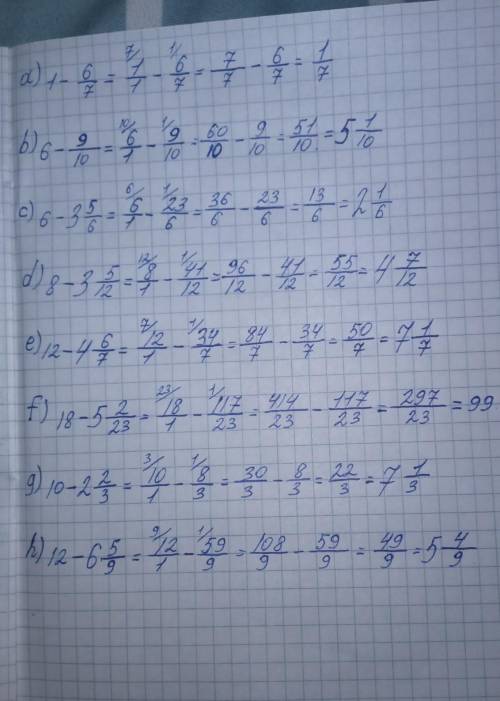 a) 1 - 6/7 = ⁷/ 1/1 - ¹/ 6/7 = 7/7 - 6/7 = 1/7
b) 6 - 9/10 = ¹⁰/ 6/1 - ¹/ 9/10 = 60/10 - 9/10 = 51/10 = 5 1/10
c) 6 - 3 5/6 = ⁶/ 6/1 - ¹/ 23/6 = 36/6 - 23/6 = 13/6 = 2 1/6
d) 8 - 3 5/12 = ¹²/ 8/1 - ¹/ 41/12 = 96/12 - 41/12 = 55/12 = 4 7/12
e) 12 - 4 6/7 = ⁷/ 12/1 - ¹/ 34/7 = 84/7 - 34/7 = 50/7 = 7 1/7
f) 18 - 5 2/23 = ²³/ 18/1 - ¹/ 117/23 = 414/23 - 117/23 = 297/23 = 99
g) 10 - 2 2/3 = ³/ 10/1 - ¹/ 8/3 = 30/3 - 8/3 = 22/3 = 7 1/3
h) 12 - 6 5/9 = ⁹/ 12/1 - ¹/ 59/9 = 108/9 - 59/9 = 49/9 = 5 4/9